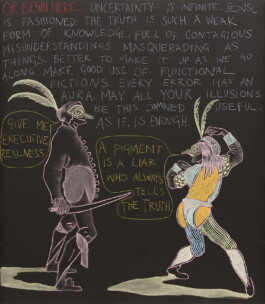 OR BEGIN HERE. UNCERTAINTY IS INFINITE. SENSE
IS FASHIONED. THE TRUTH IS SUCH A WEAK
FORM OF KNOWLEDGE, FULL OF CONTAGIOUS
MISUNDERSTANDINGS MASQUERADING AS
THINGS. BETTER TO MAKE IT UP AS WE GO
ALONG. MAKE GOOD USE OF FUNCTIONAL
FICTIONS. EVERY ERROR HAS AN
AURA. MAY ALL YOUR ILLUSIONS
BE THIS DAMNED USEFUL.
AS IF. IS ENOUGH.
GIVE ME
EXECUTIVE
REALNESS
A PIGMENT
IS A LIAR
WHO ALWAYS
TELLS
THE TRUTH